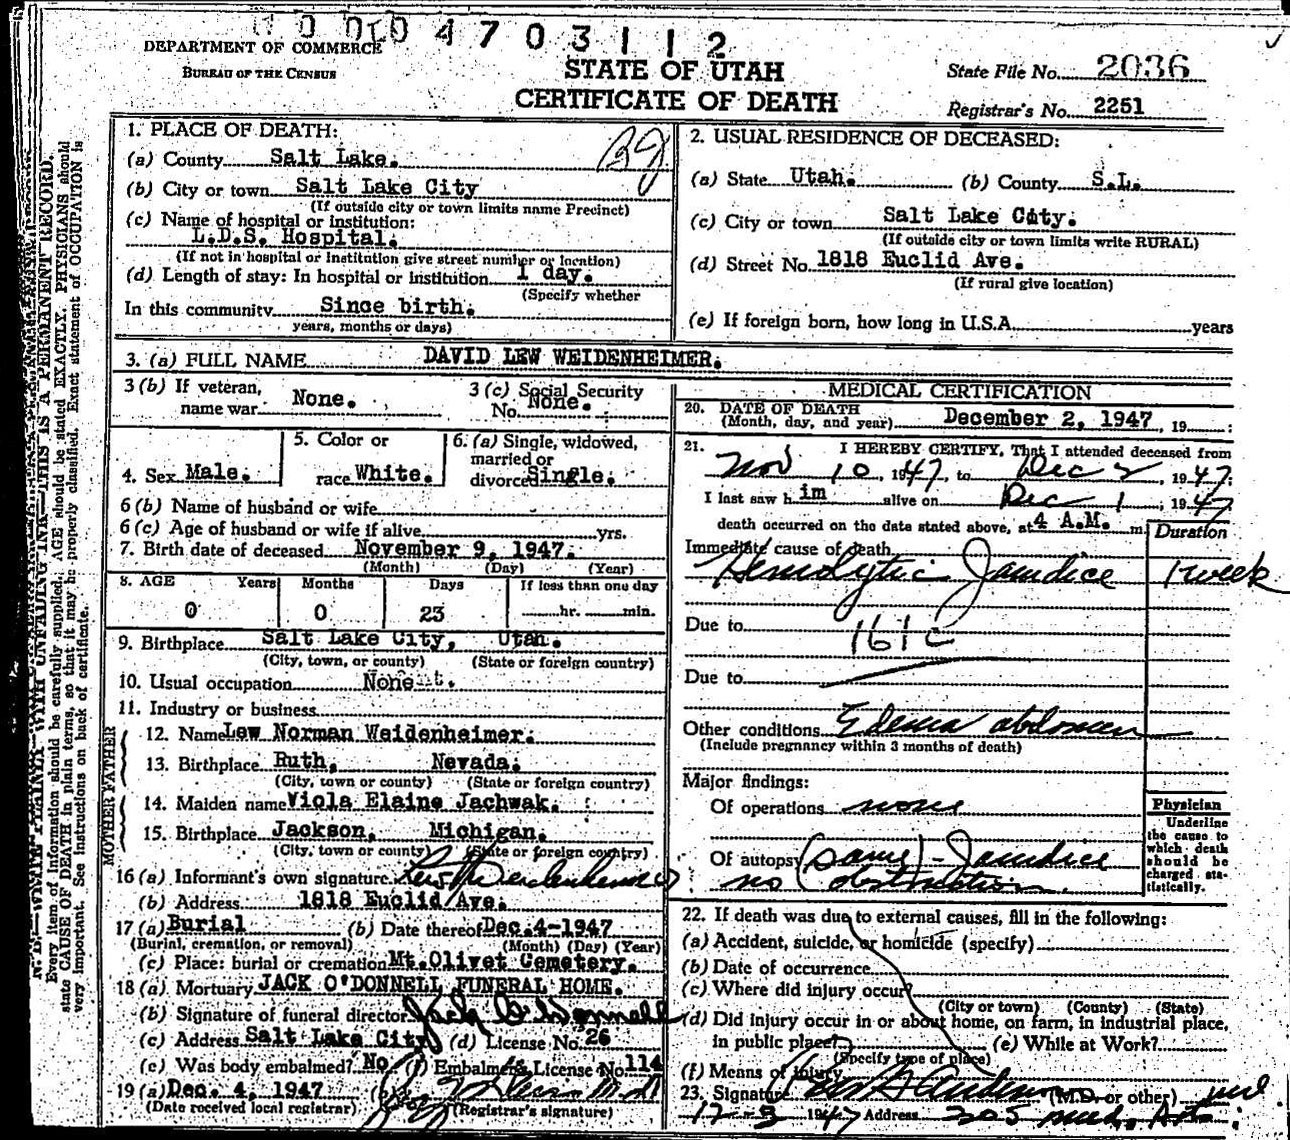 0 0 0 0 4 7 0 3 1 1 2
DEPARTMENT OF COMMERCE
BUREAU OF THE CENSUS
STATE OF UTAH
CERTIFICATE OF DEATH
State File No. 2036
Registrar's No. 2251
N. B.—WRITE PLAINLY WITH UNFADING INK—THIS IS A PERMANENT RECORD.
Every item of information should be carefully supplied. AGE should be stated EXACTLY. PHYSICIANS should
state CAUSE OF DEATH in plain terms, so that it may be properly classified. Exact statement of OCCUPATION is
very important. See instructions on back of certificate.
1. PLACE OF DEATH:
(a) County Salt Lake.
(b) City or town Salt Lake City
(If outside city or town limits name Precinct)
(c) Name of hospital or institution:
L.D.S. Hospital.
(If not in hospital or institution give street number or location)
(d) Length of stay: In hospital or institution 1 day.
(Specify whether
In this community Since birth.
years, months or days)
2. USUAL RESIDENCE OF DECEASED:
(a) State Utah. (b) County S.L.
(c) City or town Salt Lake City.
(If outside city or town limits write RURAL)
(d) Street No. 1818 Euclid Ave.
(If rural give location)
(e) If foreign born, how long in U.S.A. years
3. (a) FULL NAME DAVID LEW WEIDENHEIMER.
3 (b) If veteran,
name war None.
3 (c) Social Security
No. None.
4. Sex Male.
5. Color or
race White.
6. (a) Single, widowed,
married or
divorced Single.
6 (b) Name of husband or wife
6 (c) Age of husband or wife if alive yrs.
7. Birth date of deceased November 9, 1947.
(Month) (Day) (Year)
8. AGE Years Months Days If less than one day
0 0 23 hr. min.
9. Birthplace Salt Lake City, Utah.
(City, town, or county) (State or foreign country)
10. Usual occupation None
11. Industry or business
FATHER
12. Name Lew Norman Weidenheimer.
13. Birthplace Ruth, Nevada.
(City, town or county) (State or foreign country)
MOTHER
14. Maiden name Viola Elaine Jachwak.
15. Birthplace Jackson, Michigan.
(City, town or county) (State or foreign country)
16 (a) Informant's own signature Lew N Weidenheimer
(b) Address 1818 Euclid Ave.
17 (a) Burial (b) Date thereof Dec.4-1947
(Burial, cremation, or removal) (Month) (Day) (Year)
(c) Place: burial or cremation Mt.Olivet Cemetery.
18 (a) Mortuary JACK O'DONNELL FUNERAL HOME.
(b) Signature of funeral director Jack O'Donnell
(c) Address Salt Lake City (d) License No. 26
(e) Was body embalmed? No (f) Embalmers License No. 114
19 (a) Dec. 4, 1947 (b)
(Date received local registrar) (Registrar's signature)
MEDICAL CERTIFICATION
20. DATE OF DEATH
(Month, day, and year) December 2, 1947, 19
21. I HEREBY CERTIFY, That I attended deceased from
Nov 10, 1947, to Dec 2, 1947;
I last saw him alive on Dec 1, 1947
death occurred on the date stated above, at 4 A.M. m. Duration
Immediate cause of death
Hemolytic Jaundice 1 week
Due to 161c
Due to
Other conditions Edema abdomen
(Include pregnancy within 3 months of death)
Major findings:
Of operations none
Of autopsy (same) - Jaundice
no (obstruction)
Physician
Underline
the cause to
which death
should be
charged sta-
tistically.
22. If death was due to external causes, fill in the following:
(a) Accident, suicide, or homicide (specify)
(b) Date of occurrence
(c) Where did injury occur?
(City or town) (County) (State)
(d) Did injury occur in or about home, on farm, in industrial place,
in public place? (e) While at Work?
(Specify type of place)
(f) Means of injury
23. Signature (M.D. or other)
12-3 1947 Address 205 Med. Arts.